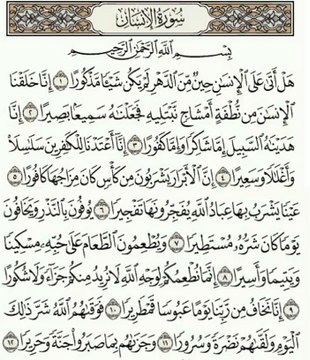 سورة الإنسان
بِسْمِ اللَّهِ الرَّحْمَٰنِ الرَّحِيمِ
هَلْ أَتَىٰ عَلَى الْإِنسَانِ حِينٌ مِّنَ الدَّهْرِ لَمْ يَكُن شَيْئًا مَّذْكُورًا ١ إِنَّا خَلَقْنَا
الْإِنسَانَ مِن نُّطْفَةٍ أَمْشَاجٍ نَّبْتَلِيهِ فَجَعَلْنَاهُ سَمِيعًا بَصِيرًا ٢ إِنَّا
هَدَيْنَاهُ السَّبِيلَ إِمَّا شَاكِرًا وَإِمَّا كَفُورًا ٣ إِنَّا أَعْتَدْنَا لِلْكَافِرِينَ سَلَاسِلَا۟
وَأَغْلَالًا وَسَعِيرًا ٤ إِنَّ الْأَبْرَارَ يَشْرَبُونَ مِن كَأْسٍ كَانَ مِزَاجُهَا كَافُورًا ٥
عَيْنًا يَشْرَبُ بِهَا عِبَادُ اللَّهِ يُفَجِّرُونَهَا تَفْجِيرًا ٦ يُوفُونَ بِالنَّذْرِ وَيَخَافُونَ
يَوْمًا كَانَ شَرُّهُ مُسْتَطِيرًا ٧ وَيُطْعِمُونَ الطَّعَامَ عَلَىٰ حُبِّهِ مِسْكِينًا
وَيَتِيمًا وَأَسِيرًا ٨ إِنَّمَا نُطْعِمُكُمْ لِوَجْهِ اللَّهِ لَا نُرِيدُ مِنكُمْ جَزَاءً وَلَا شُكُورًا
٩ إِنَّا نَخَافُ مِن رَّبِّنَا يَوْمًا عَبُوسًا قَمْطَرِيرًا ١٠ فَوَقَاهُمُ اللَّهُ شَرَّ ذَٰلِكَ
الْيَوْمِ وَلَقَّاهُمْ نَضْرَةً وَسُرُورًا ١١ وَجَزَاهُم بِمَا صَبَرُوا جَنَّةً وَحَرِيرًا ١٢